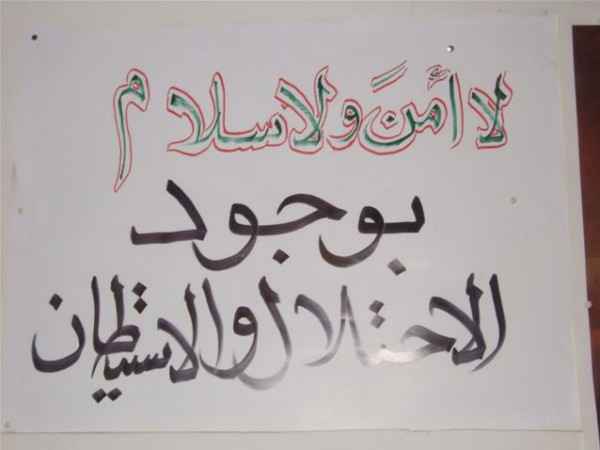 لا أمنَ ولا سلام
بوجود
الاحتلال والاستيطان